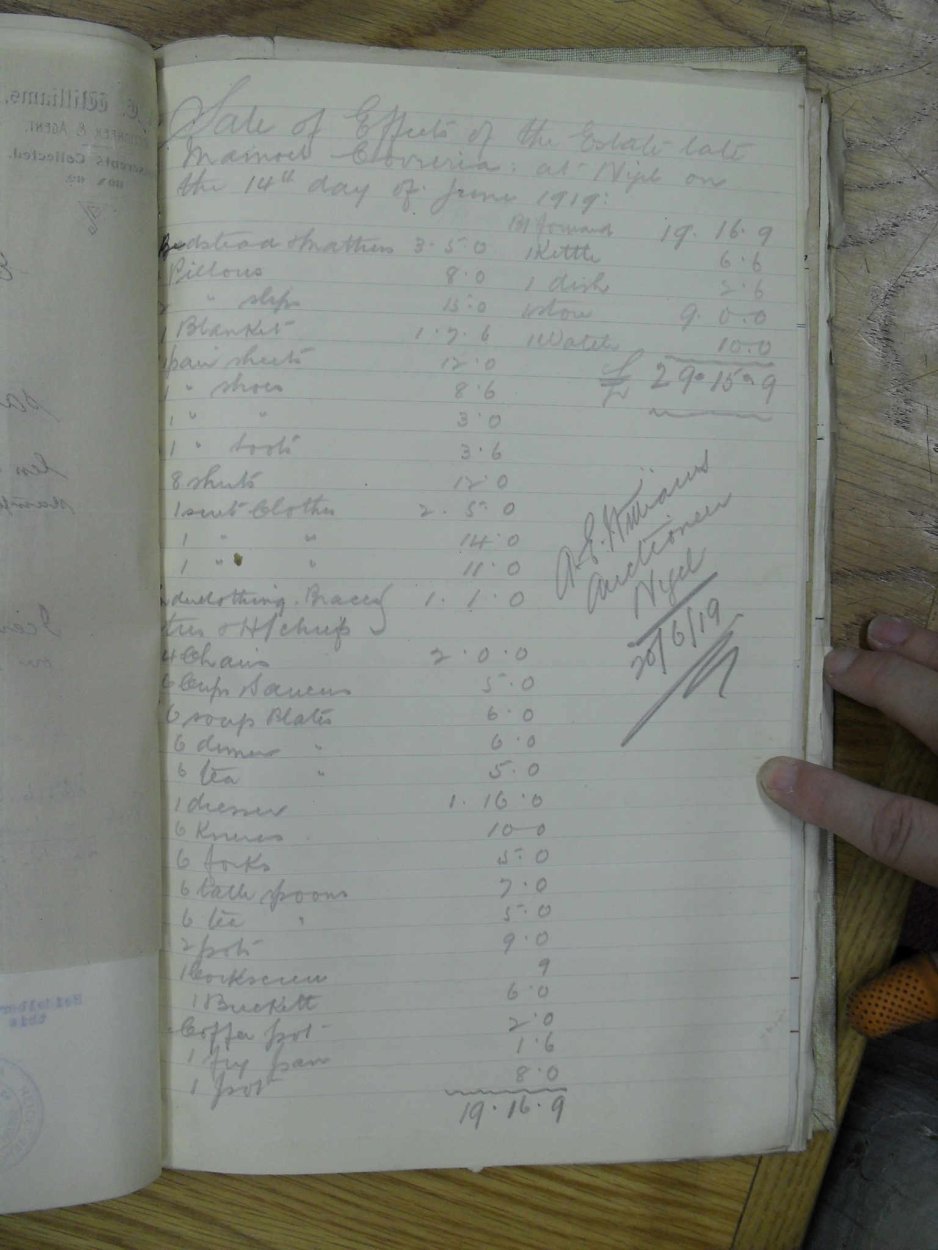 Sale of Effects of the Estate late
Manoel : at Nigel on
the 14th day of June 1919:
Bedstead & Mattress 3.5.0
Pillows 8.0
2 " slips 15.0
1 Blanket 1.7.6
1 pair sheets 12.0
1 " shoes 8.6
1 " " 3.0
1 " boots 3.6
8 shirts 12.0
1 suit Clothes 2.5.0
1 " " 14.0
1 " " 11.0
Underclothing. Braces } 1.1.0
ties & H/chiefs
4 Chairs 2.0.0
6 Cups Saucers 5.0
6 soup Plates 6.0
6 dinner " 6.0
6 tea " 5.0
1 dresser 1.16.0
6 Knives 10.0
6 forks 5.0
6 table spoons 7.0
6 tea " 5.0
2 pots 9.0
1 Corkscrew 9
1 Buckett 6.0
Coffee pot 2.0
1 fry pan 1.6
1 pot 8.0
19.16.9
B/forward 19.16.9
1 Kettle 6.6
1 dish 2.6
1 stove 9.0.0
1 Watch 10.0
29.15.9
A.E. Williams
Auctioneer
Nigel
20/6/19